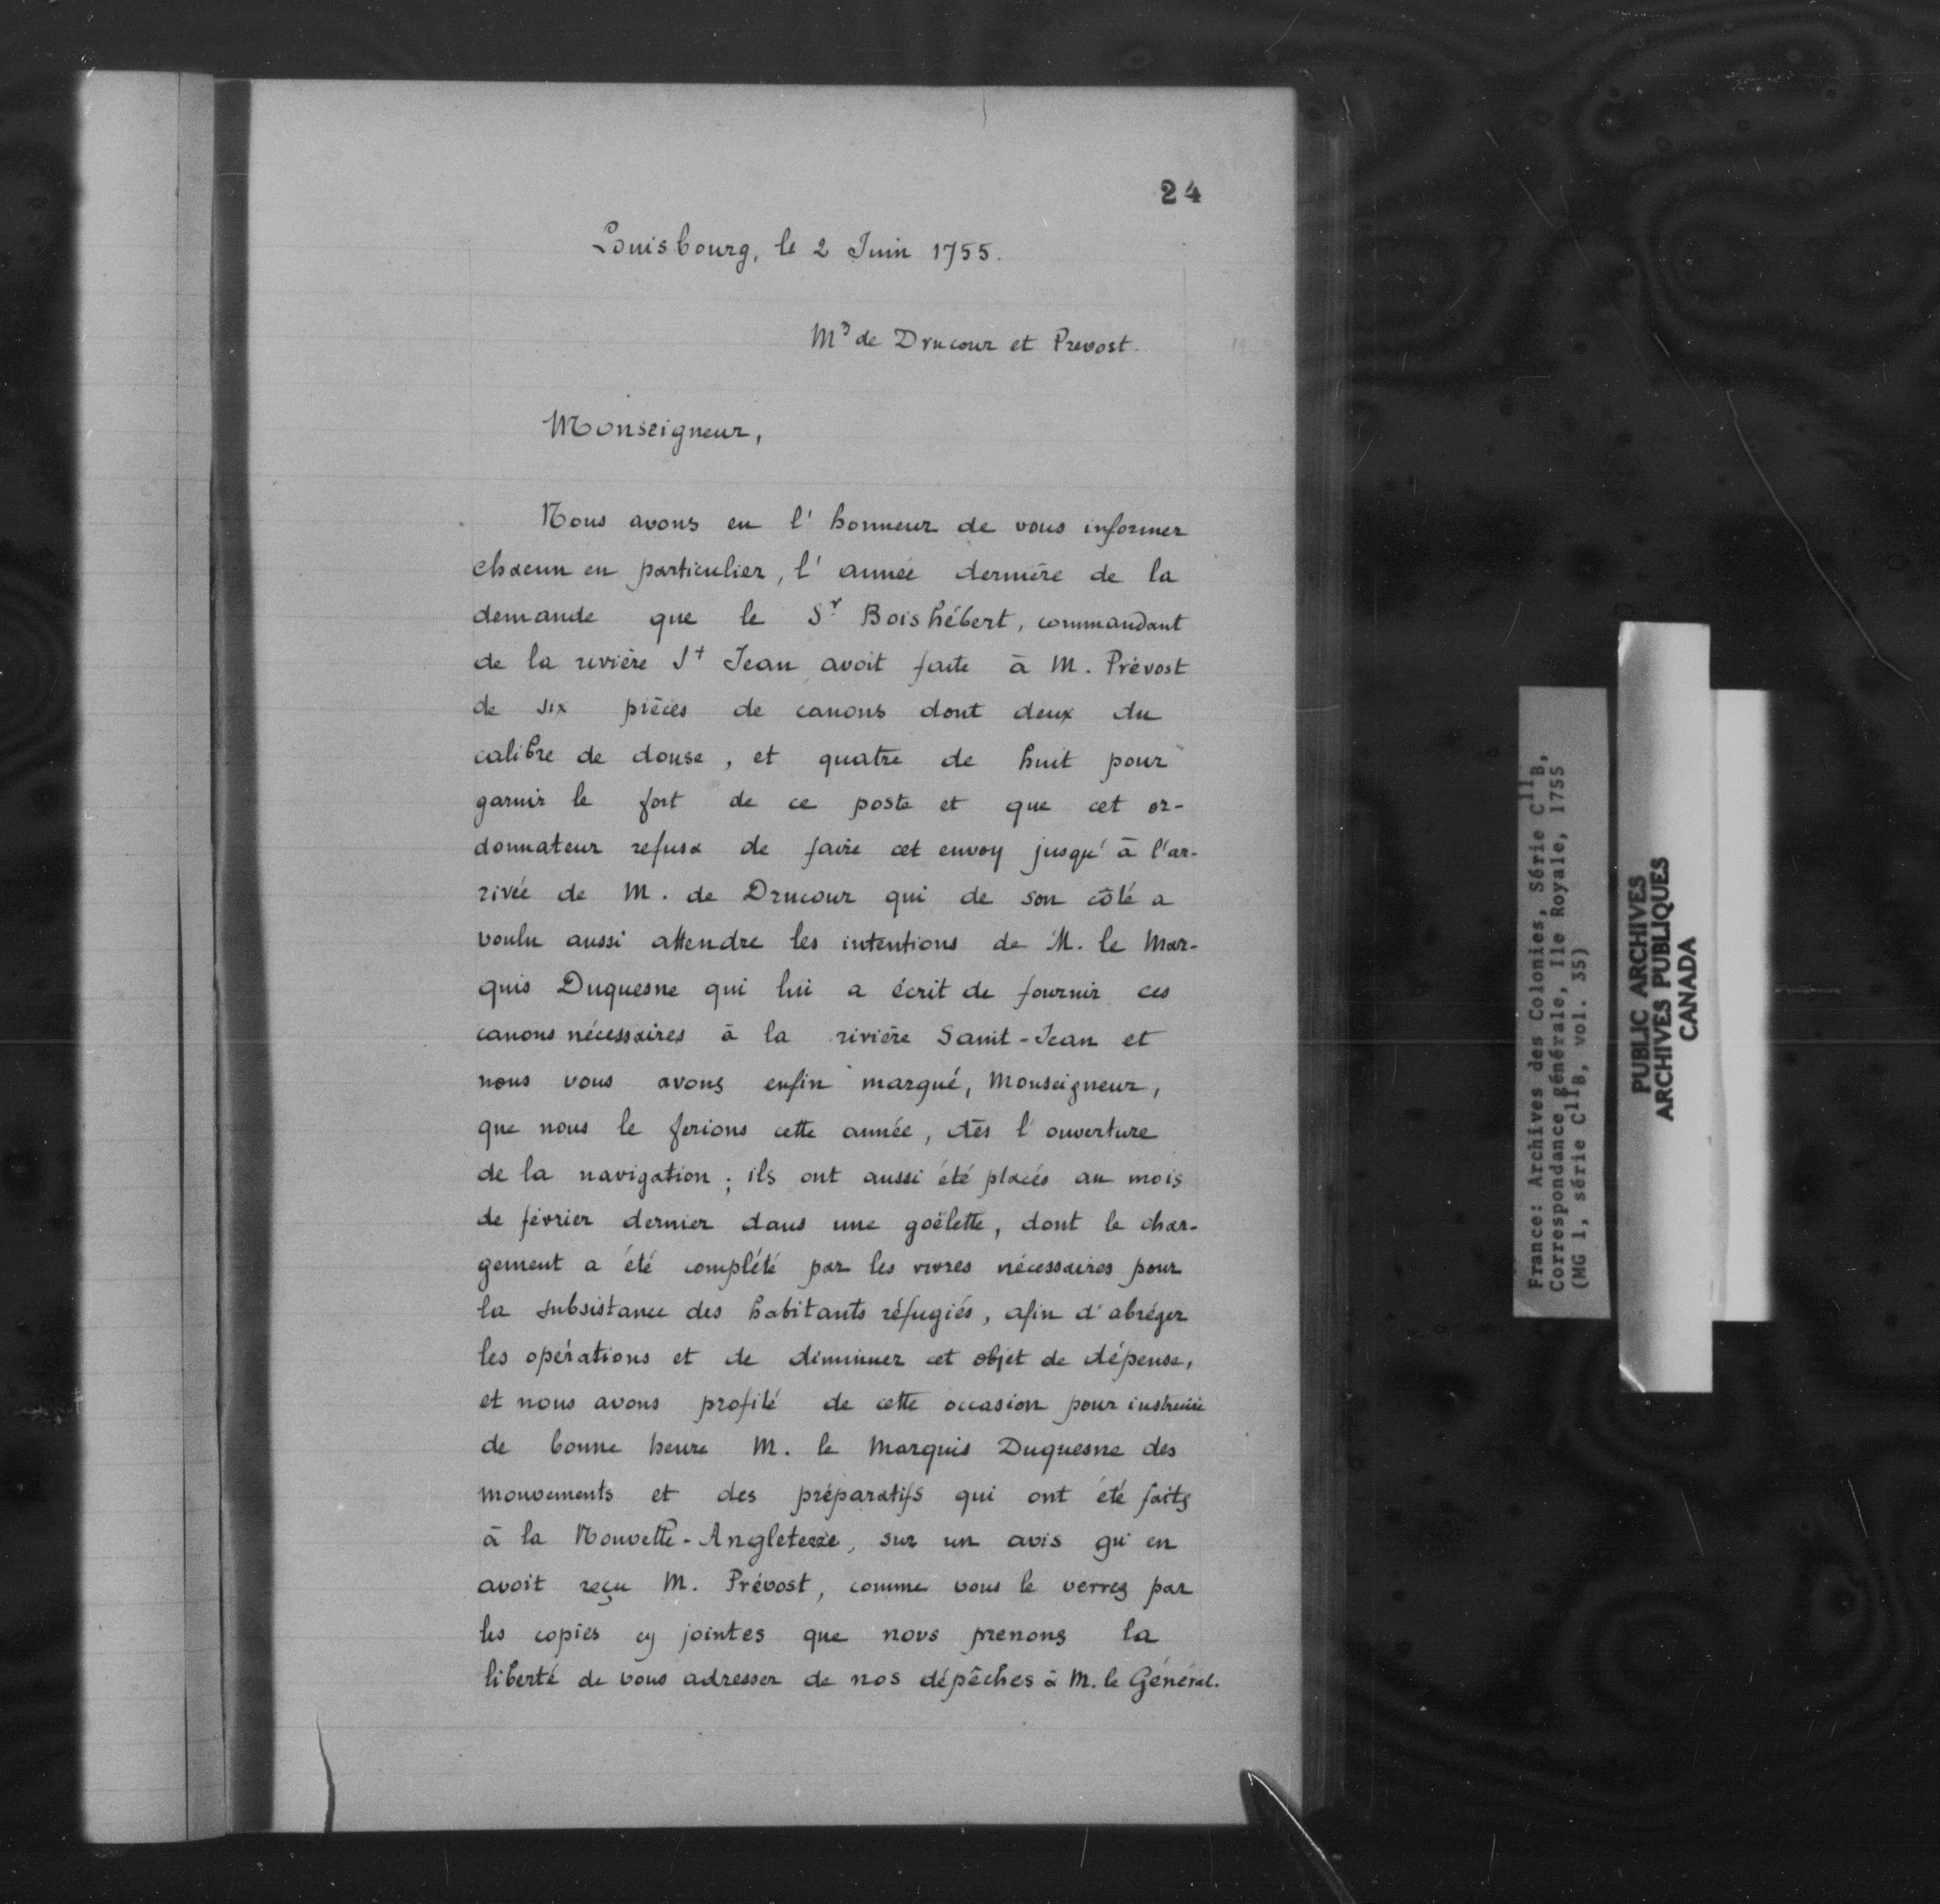 24
Louisbourg, le 2 Juin 1755.
Mrs de Drucour et Prevost.
Monseigneur,
Nous avons eu l'honneur de vous informer
chacun en particulier, l'année dernière de la
demande que le Sr Boishébert, commandant
de la rivière St Jean avoit faite à M. Prévost
de six pièces de canons dont deux du
calibre de douse, et quatre de huit pour
garnir le fort de ce poste et que cet or-
donnateur refusa de faire cet envoy jusqu'à l'ar-
rivée de M. de Drucour qui de son côté a
voulu aussi attendre les intentions de M. le Mar-
quis Duquesne qui lui a écrit de fournir ces
canons nécessaires à la rivière Saint-Jean et
nous vous avons enfin marqué, Monseigneur,
que nous le ferions cette année, dès l'ouverture
de la navigation; ils ont aussi été placés au mois
de février dernier dans une goëlette, dont le char-
gement a été complété par les vivres nécessaires pour
la subsistance des habitants réfugiés, afin d'abréger
les opérations et de diminuer cet objet de dépense,
et nous avons profité de cette occasion pour instruire
de bonne heure M. le Marquis Duquesne des
mouvements et des préparatifs qui ont été faits
à la Nouvelle-Angleterre, sur un avis qu'en
avoit reçu M. Prévost, comme vous le verrez par
les copies cy jointes que nous prenons la
liberté de vous adresser de nos dépêches à M. le Général.
France: Archives des Colonies, Série C11B,
Correspondance générale, Ile Royale, 1755
(MG 1, série C11B, vol. 35)
PUBLIC ARCHIVES
ARCHIVES PUBLIQUES
CANADA